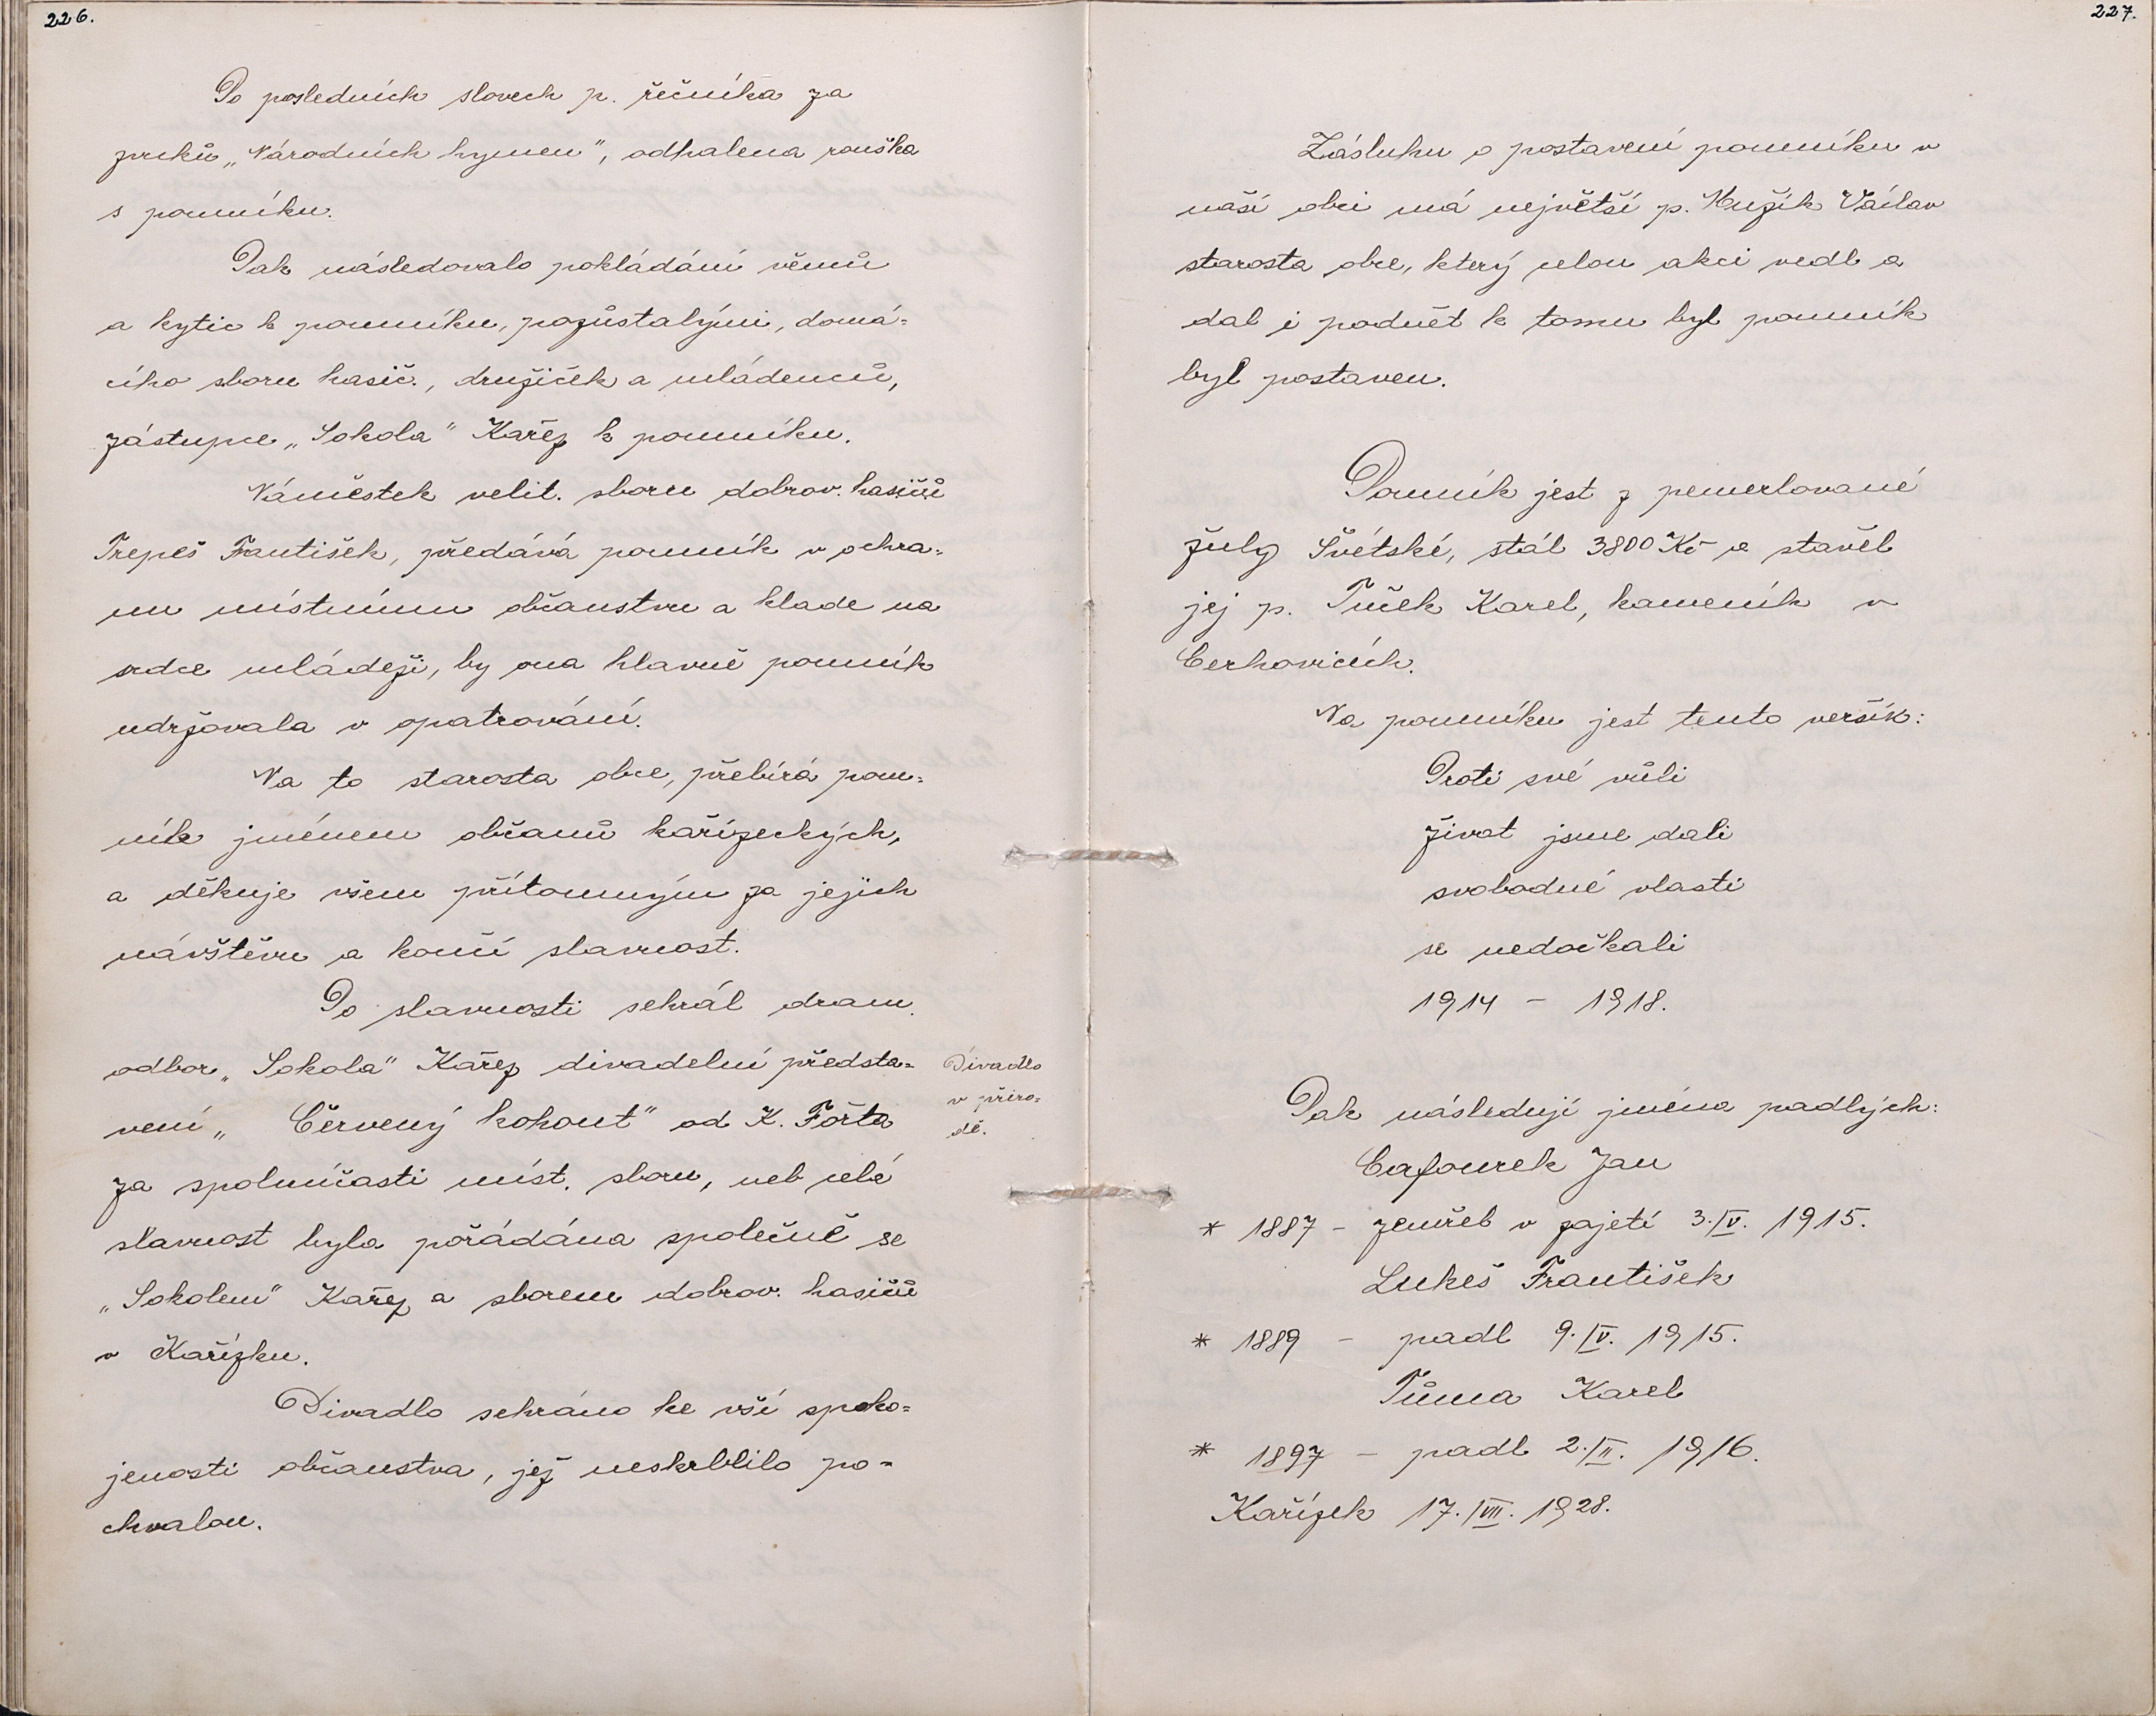 226.
Po posledních slovech p. řečníka za
zvuků „Národních hymen", odhalena rouška
s pomníku.
Pak následovalo pokládání věnců
a kytic k pomníku, pozůstalými, domá=
cího sboru hasič., družiček a mládenců,
zástupce „Sokola" Kařez k pomníku.
Náměstek velit. sboru dobrov. hasičů
Trepeš František, předává pomník v ochra=
nu místnímu občanstvu a klade na
srdce mládeži, by ona hlavně pomník
udržovala v opatrování.
Na to starosta obce, přebírá pom=
ník jménem občanů kařízeckých,
a děkuje všem přítomným za jejich
návštěvu a končí slavnost.
Po slavnosti sehrál dram.
odbor „Sokola" Kařez divadelní předsta=
vení „Červený kohout" od K. Fořta
za spoluúčasti míst. sboru, neb celá
slavnost byla pořádána společně se
„Sokolem" Kařez a sborem dobrov. hasičů
v Kařízku.
Divadlo sehráno ke vší spoko=
jenosti občanstva, jež neskrblilo po=
chvalou.
Divadlo
v příro=
dě.
227.
Zásluhu o postavení pomníku v
naší obci má největší p. Václav
starosta obce, který celou akci vedl a
dal i podnět k tomu byl pomník
byl postaven.
Pomník jest z pemerlované
žuly Švétské, stál 3800 Kč a stavěl
jej p. Tuček Karel, kameník v
Cerhovicích.
Na pomníku jest tento veršík:
Proti své vůli
život jsme dali
svobodné vlasti
se nedočkali
1914 – 1918.
Pak následují jména padlých:
Cafourek Jan
* 1887 – zemřel v zajetí 3.IV. 1915.
Lukeš František
* 1889 – padl 9.IV. 1915.
Tůma Karel
* 1897 – padl 2.II. 1916.
Kařízek 17.VIII. 1928.